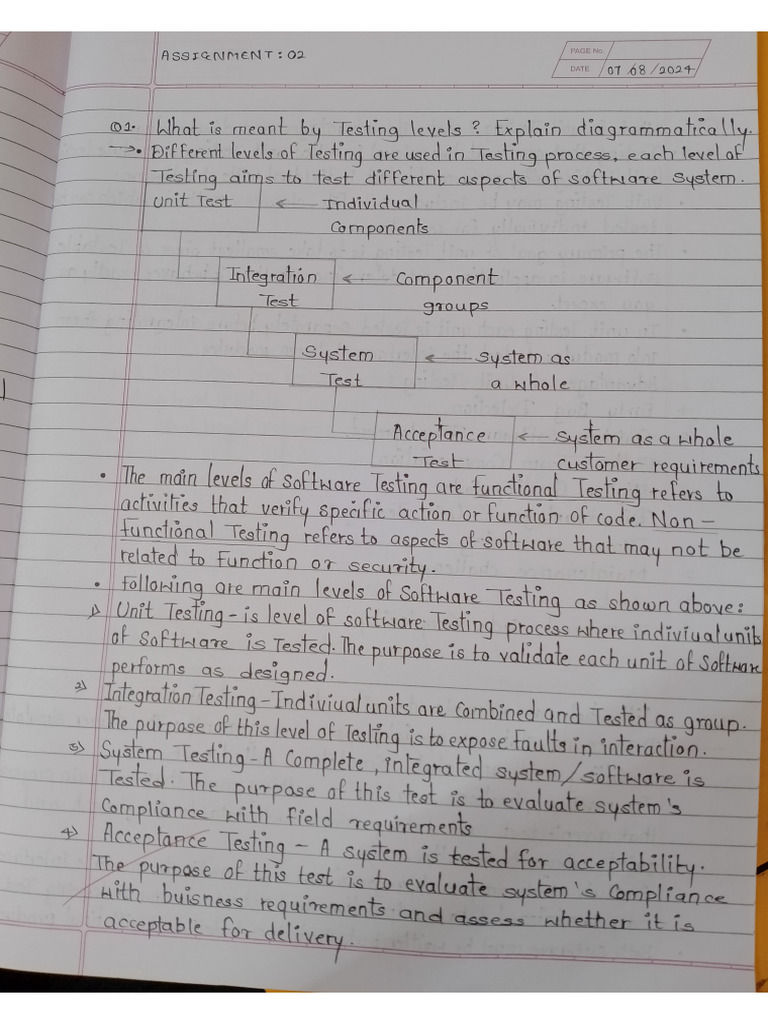 ASSIGNMENT: 02
PAGE No.
DATE 07/08/2024
Q1. What is meant by Testing levels? Explain diagrammatically.
→ • Different levels of Testing are used in Testing process, each level of
Testing aims to test different aspects of software system.
Unit Test ← Individual
Components
Integration ← Component
Test groups
System ← System as
Test a whole
Acceptance ← System as a whole
Test customer requirements
• The main levels of Software Testing are functional Testing refers to
activities that verify specific action or function of code. Non-
functional Testing refers to aspects of software that may not be
related to Function or security.
• Following are main levels of Software Testing as shown above:
1) Unit Testing - is level of software Testing process where indiviual units
of Software is Tested. The purpose is to validate each unit of Software
performs as designed.
2) Integration Testing - Indiviual units are Combined and Tested as group.
The purpose of this level of Testing is to expose faults in interaction.
3) System Testing - A Complete, integrated system/software is
Tested. The purpose of this test is to evaluate system's
Compliance with field requirements
4) Acceptance Testing - A system is tested for acceptability.
The purpose of this test is to evaluate system's Compliance
with buisness requirements and assess whether it is
acceptable for delivery.